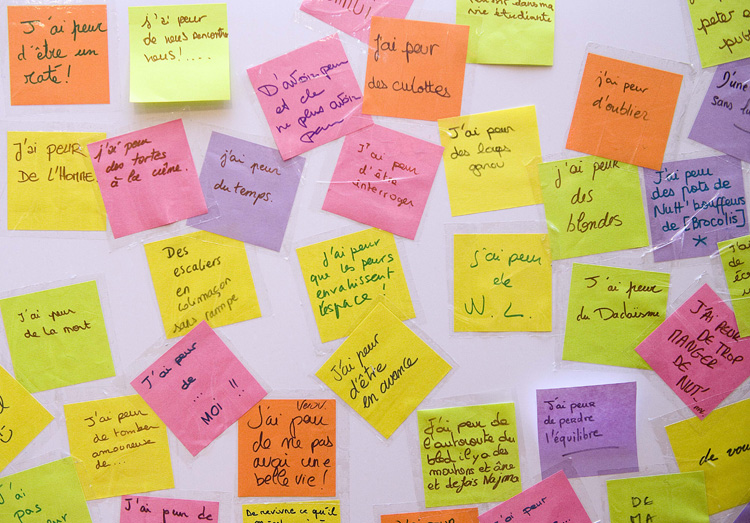 J'ai peur
d'être un
raté !
j'ai peur
de vous rencontrer
vous ! ....
D'avoir peur
et de
ne plus avoir
peur
j'ai peur
des culottes
vie étudiante
j'ai peur
d'oublier
peter
publ
D'une
sans
J'ai peur
DE L'HOMME
j'ai peur
des tartes
à la crème.
j'ai peur
du temps.
J'ai peur
d'être
interroger
J'ai peur
des loups
garou
j'ai peur
des
blondes
J'ai peur
des pots de
Nutt' bouffeurs
de [Brocolis]
*
Des
escaliers
en
colimaçon
sans rampe
j'ai peur
que les peurs
envahissent
l'espace !
j'ai peur
de
W. L.
J'ai peur
du Dadaïsme
J'ai peur
de la mort
J'ai peur
de
... MOI !!
J'ai peur
d'être
en avance
J'AI PEUR
DE TROP
MANGER
DE NUT'
J'ai peur
de tomber
amoureuse
de...
J'ai peur
de ne pas
avoir une
belle vie !
J'ai peur de
l'autoroute du
bled il y a des
moutons et âne
et de fois Najma
J'ai peur
de perdre
l'équilibre
de vou
j'ai
pas
J'ai peur de
De revivre ce qu'il
J'ai peur
DE
MA